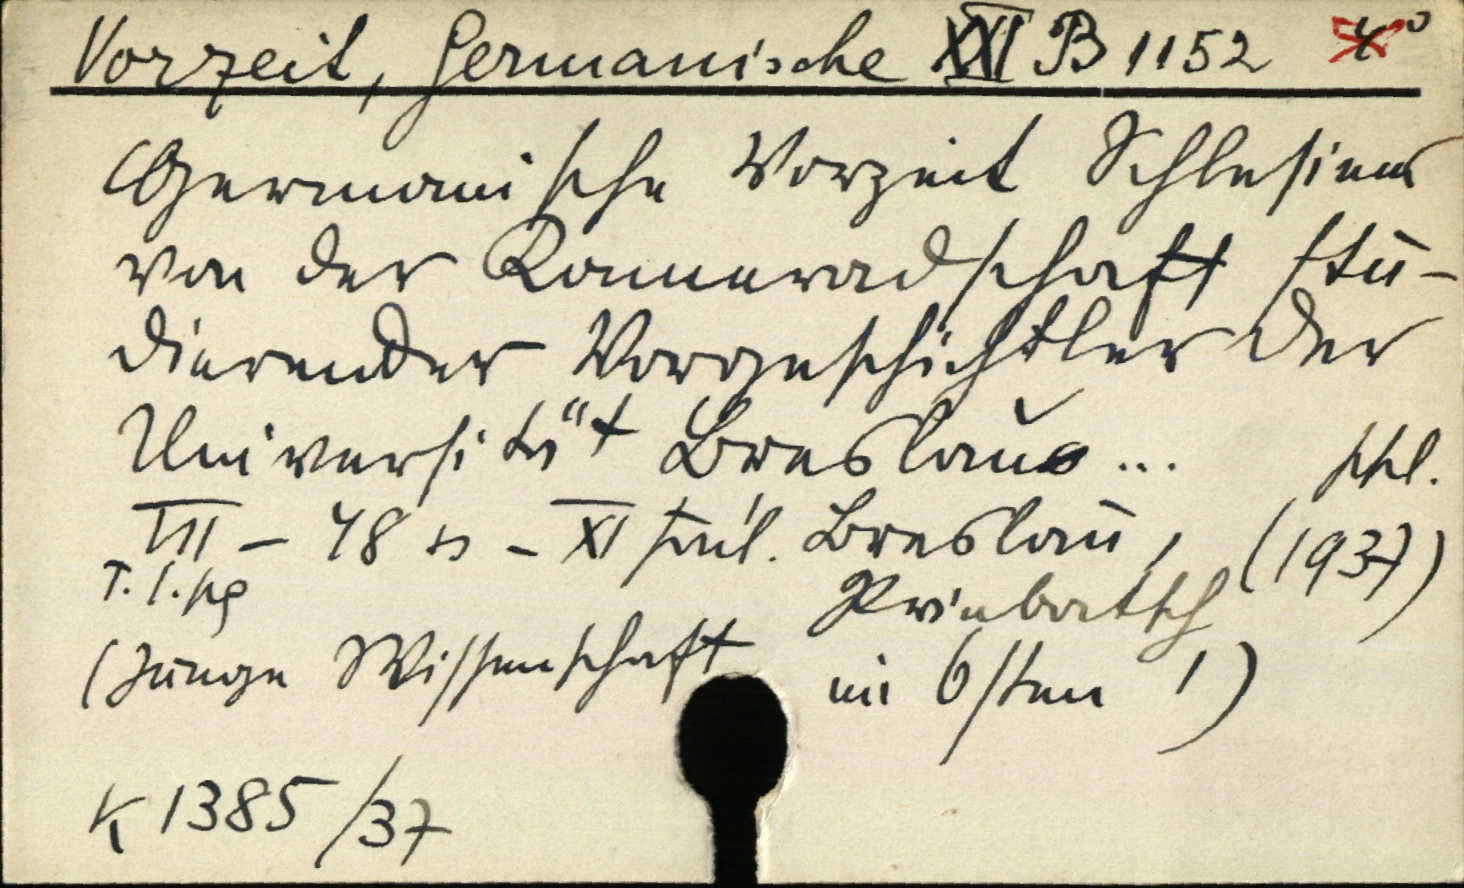 Vorzeit, Germanische XXI B 1152 4°
Germanische Vorzeit Schlesiens
von der Kameradschaft stu-
dierender Vorgeschichtler der
Universität Breslau ...
VII - 48 S - XI Taf. Breslau, (1937)
Priebatsch
(Junge Wissenschaft im Osten 1)
K 1385/37